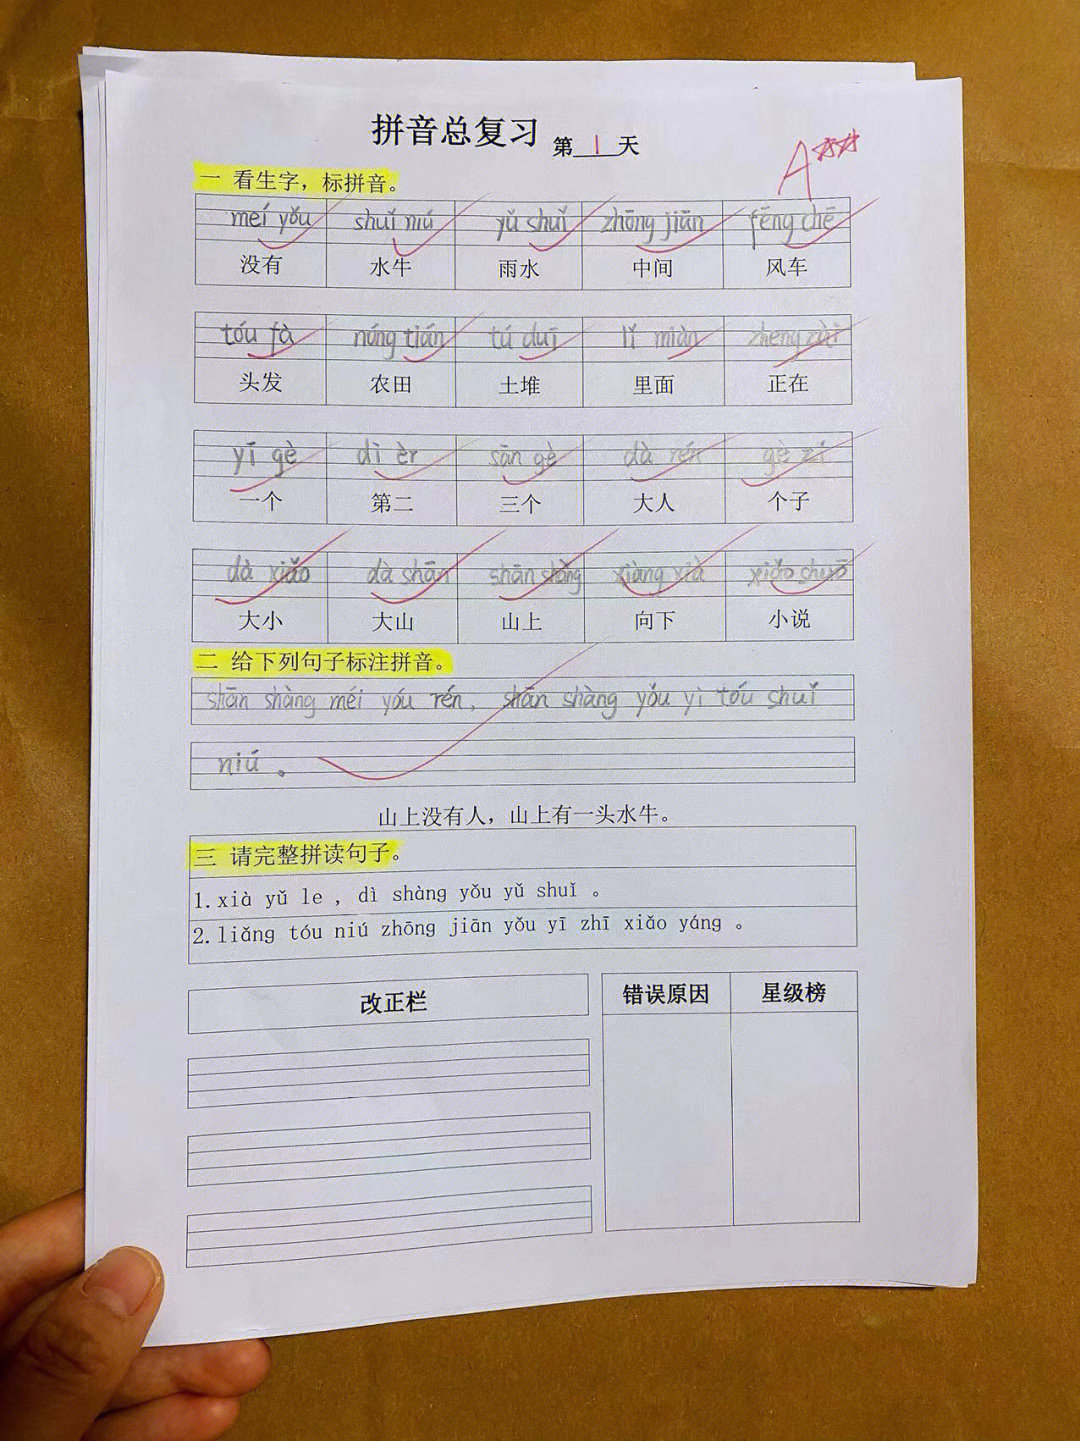 拼音总复习 第1天
A☆☆
一 看生字，标拼音。
meí yǒu shuǐ niú yǔ shuǐ zhōng jiān fēng chē
没有 水牛 雨水 中间 风车
tóu fà nóng tián tú duī lǐ miàn zheng zài
头发 农田 土堆 里面 正在
yī gè dì èr sān gè dà rén gè zi
一个 第二 三个 大人 个子
dà xiǎo dà shān shān shàng xiàng xià xiǎo shuō
大小 大山 山上 向下 小说
二 给下列句子标注拼音。
shān shàng méi yóu rén, shān shàng yǒu yì tóu shuǐ
niú 。
山上没有人，山上有一头水牛。
三 请完整拼读句子。
1.xià yǔ le , dì shàng yǒu yǔ shuǐ 。
2.liǎng tóu niú zhōng jiān yǒu yī zhī xiǎo yáng 。
改正栏 错误原因 星级榜